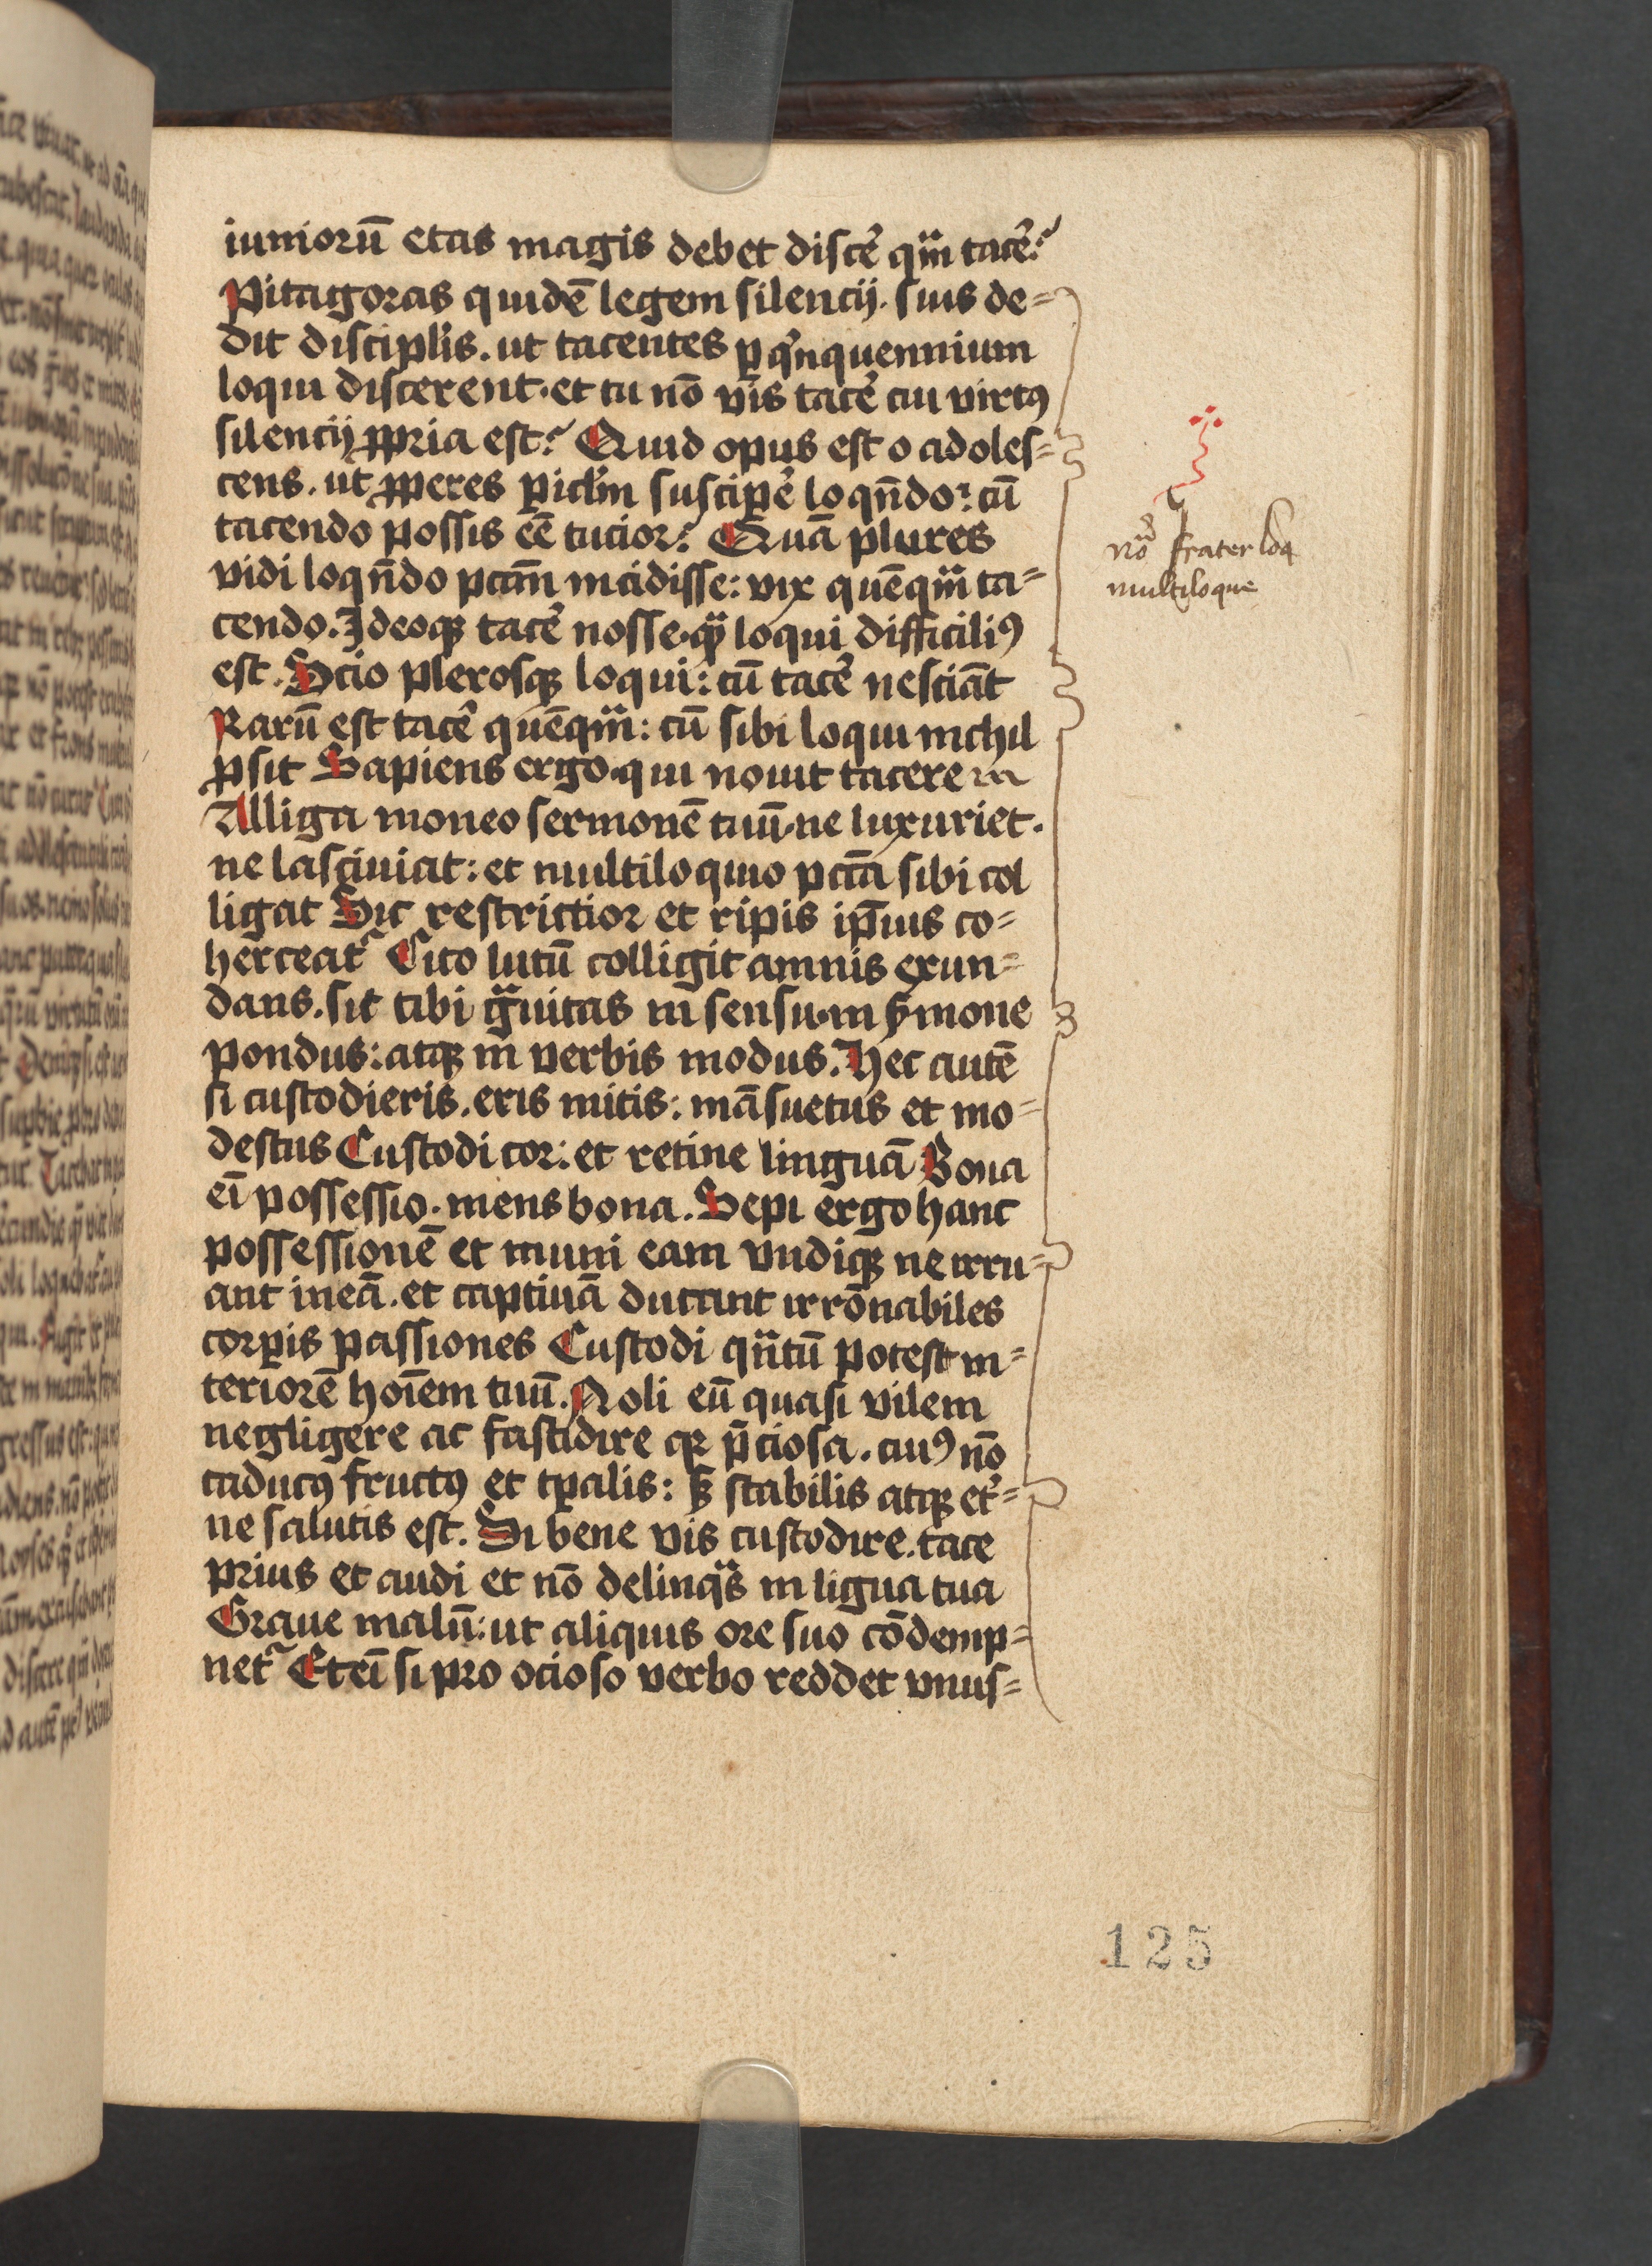 iuniorū etas magis debet discē qm̄ tacē?
Pitagoras quidē legem silencij. suis de=
dit disciplis. ut tacentes p qinquennium
loqui discerent. et tu nō vis tacē cui virtꝰ
silencij ꝓpria est? Quid opus est o adoles=
cens. ut ꝓperes picl̄m suscipē loqn̄do? cū
tacendo possis eē tucior? Quā plures
vidi loqn̄do pctm̄ incidisse: vix quēqm̄ ta=
cendo. Ideoqꝫ tacē nosse. qᷓ loqui difficiliꝰ
est. Scio plerosqꝫ loqui: cū tacē nesciāt
Rarū est tacē quēqm̄: cū sibi loqui nichil
ꝓsit Sapiens ergo. qui nouit tacere
Alliga moneo sermonē tuū. ne luxuriet.
ne lasciuiat: et multiloquio pctā sibi col
ligat Sit restrictior et ripis ip̄ius co=
herceat᷑ Cito lutū colligit amnis exun=
dans. sit tibi gᷓuitas in sensu. in ẜmone
pondus: atqꝫ in verbis modus. Hec autē
si custodieris. eris mitis: māsuetus et mo=
destus Custodi cor: et retine linguā Bona
eī possessio. mens bona. Sepi ergo hanc
possessionē et muni eam vndiqꝫ ne irru=
ant in eā. et captiuā ducant irrōnabiles
corꝑis passiones Custodi qn̄tū potest in=
teriorē hoīem tuū. Noli eū quasi vilem
negligere ac fastidire qꝛ p̄ciosa. cuiꝰ nō
caducꝰ fructꝰ et tꝑalis: sꝫ stabilis atqꝫ et̾=
ne salutis est. Si bene vis custodire. tace
prius et audi et nō delinqͣs in ligua tua
Graue malū: ut aliquis ore suo cōdemp=
net᷑ Eteī si pro ocioso verbo reddet vnus=
frater
multiloque
125